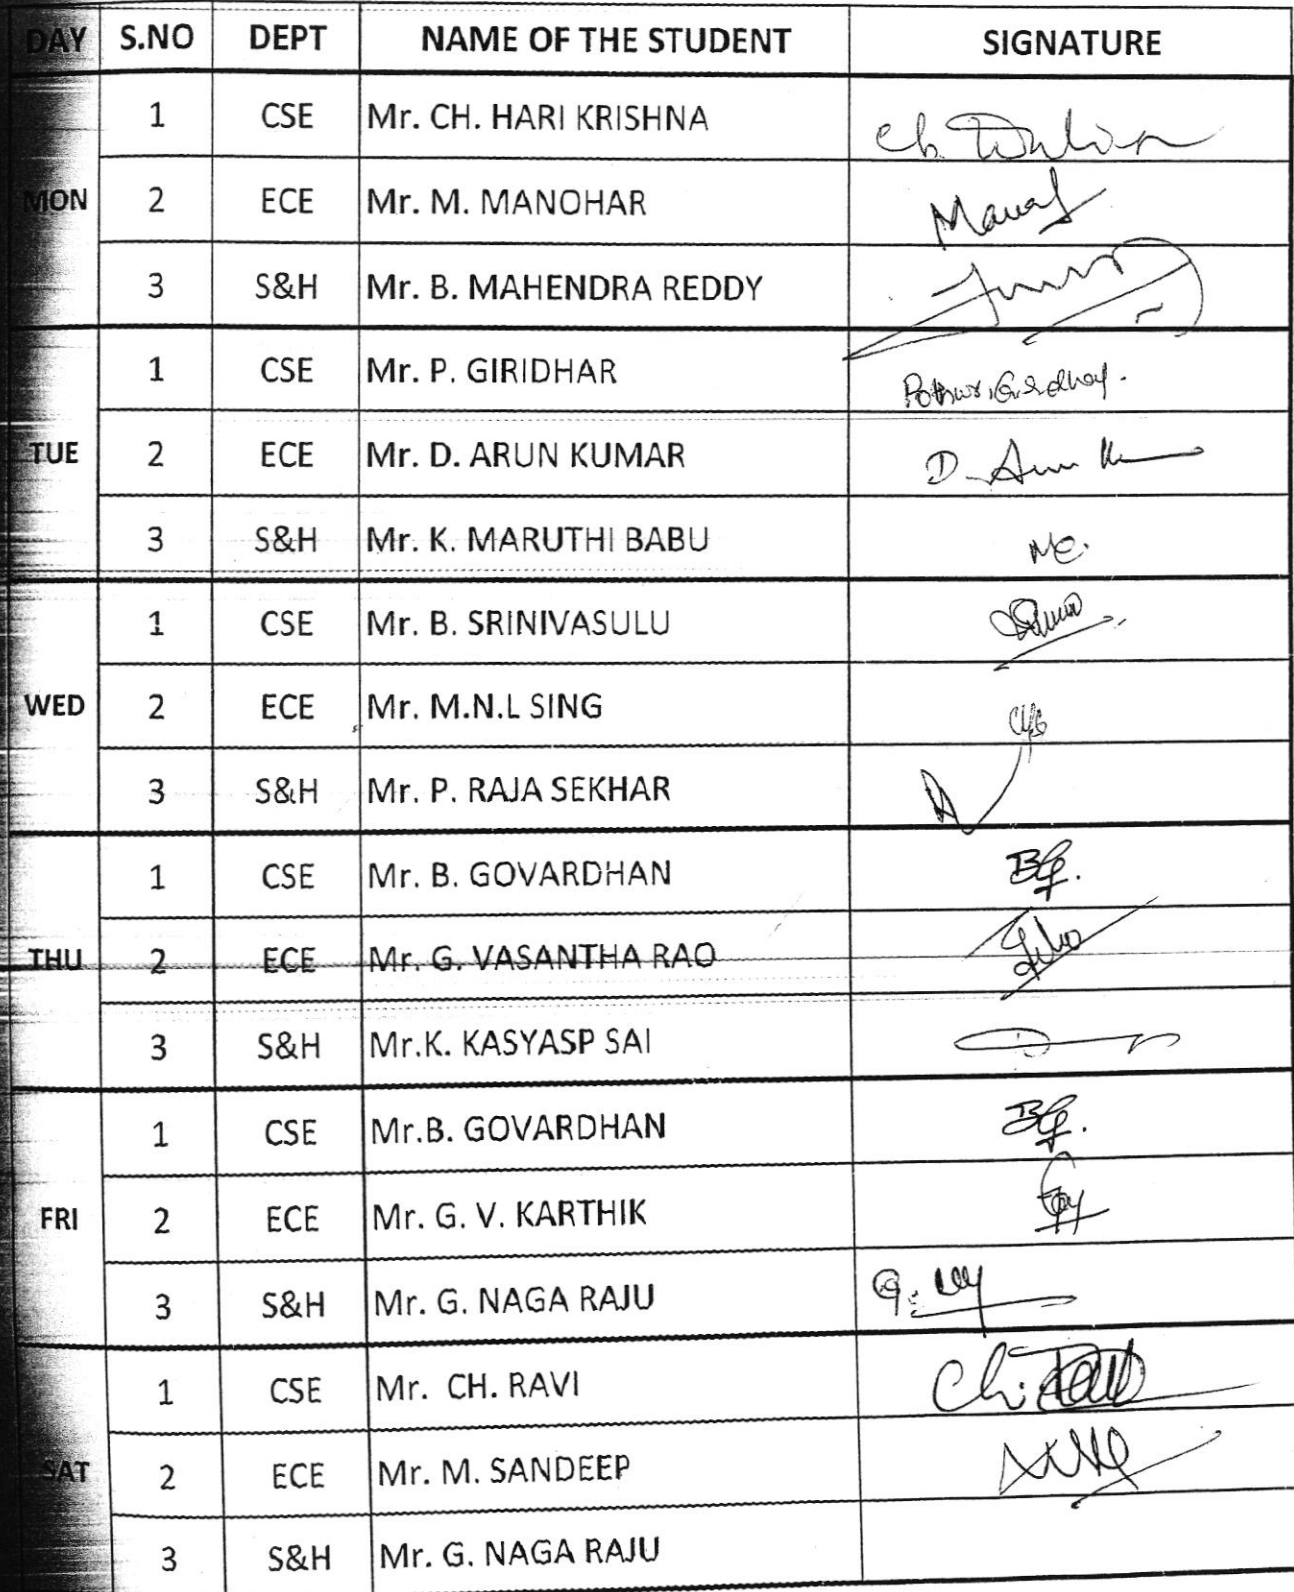 DAY S.NO DEPT NAME OF THE STUDENT SIGNATURE
1 CSE Mr. CH. HARI KRISHNA
MON 2 ECE Mr. M. MANOHAR
3 S&H Mr. B. MAHENDRA REDDY
1 CSE Mr. P. GIRIDHAR
TUE 2 ECE Mr. D. ARUN KUMAR D. Arun K
3 S&H Mr. K. MARUTHI BABU
1 CSE Mr. B. SRINIVASULU
WED 2 ECE Mr. M.N.L SING
3 S&H Mr. P. RAJA SEKHAR
1 CSE Mr. B. GOVARDHAN BG.
THU 2 ECE Mr. G. VASANTHA RAO
3 S&H Mr.K. KASYASP SAI
1 CSE Mr.B. GOVARDHAN BG.
FRI 2 ECE Mr. G. V. KARTHIK
3 S&H Mr. G. NAGA RAJU
1 CSE Mr. CH. RAVI
SAT 2 ECE Mr. M. SANDEEP
3 S&H Mr. G. NAGA RAJU